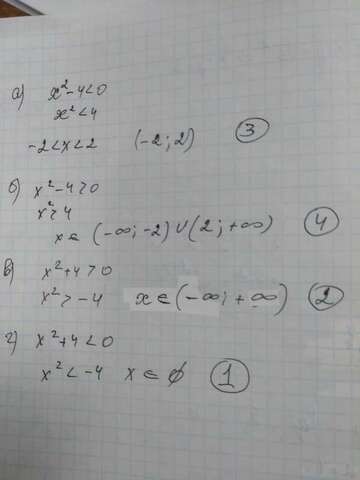 а) x²-4<0
x²<4
-2<x<2 (-2; 2) 3
б) x²-4>0
x²>4
x ∈ (-∞; -2) ∪ (2; +∞) 4
в) x²+4>0
x²>-4 x ∈ (-∞; +∞) 2
г) x²+4<0
x²<-4 x ∈ ∅ 1